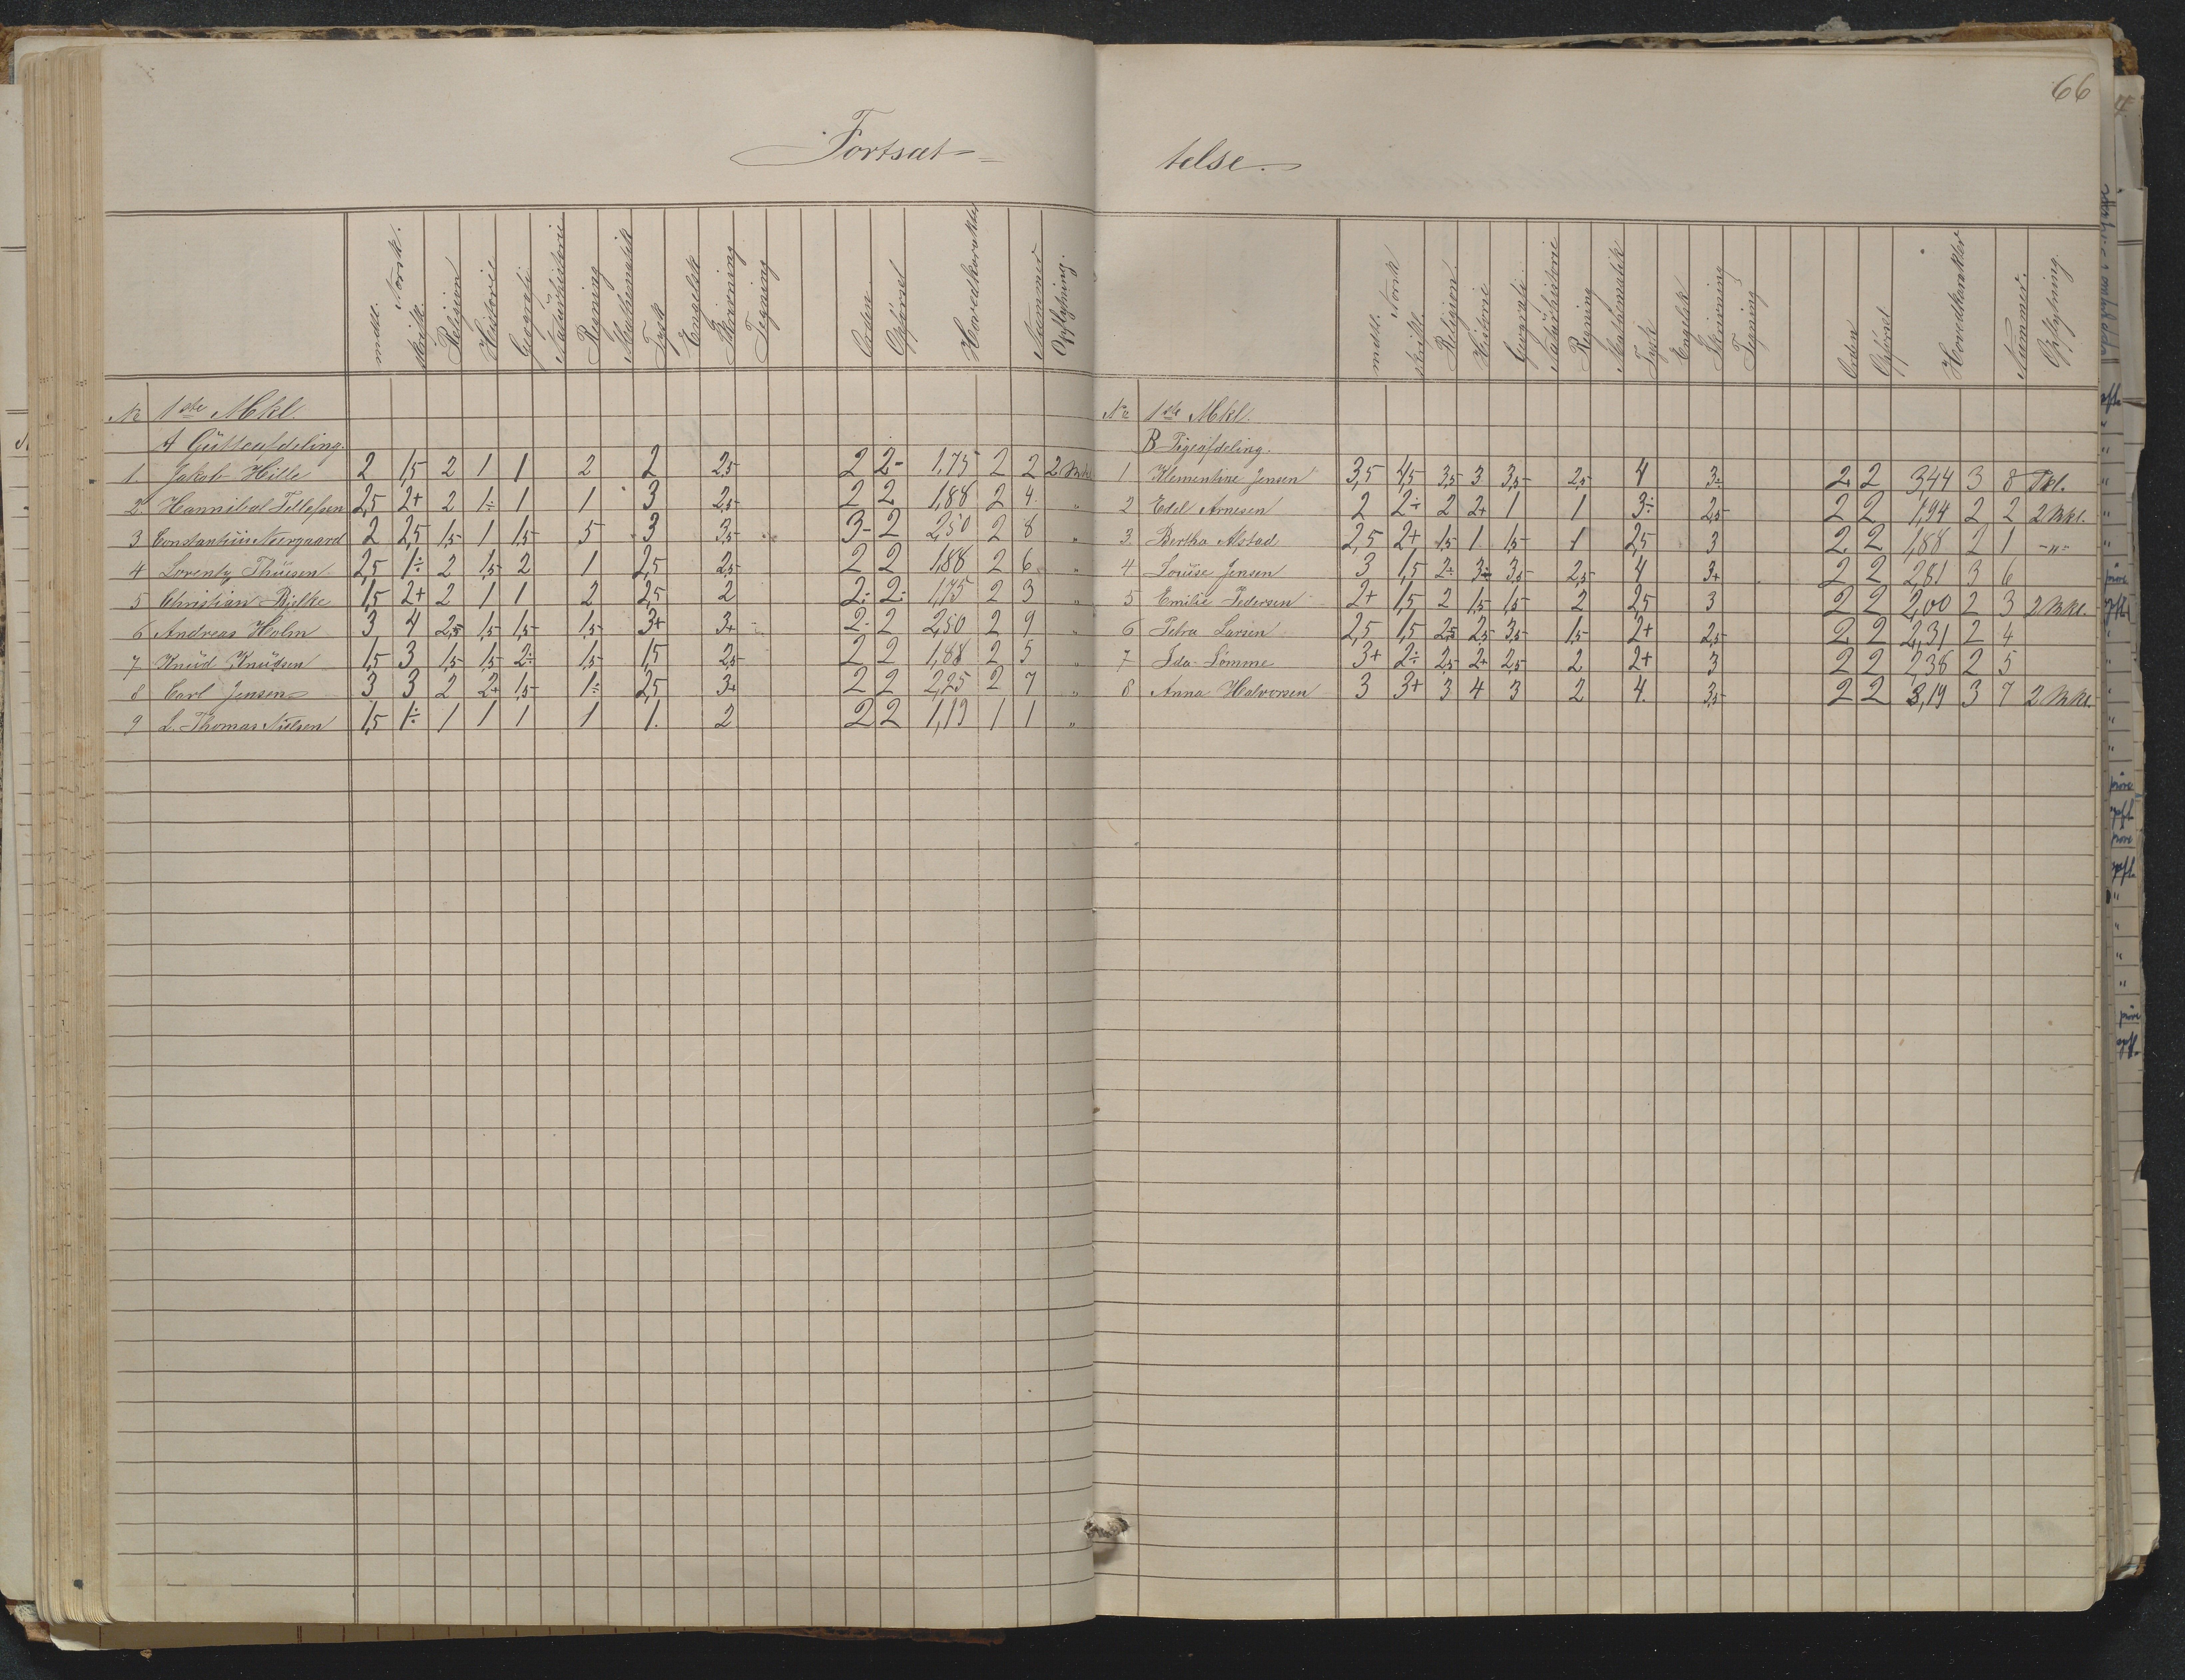 66
Fortsæt=
telse.
mdtl. Norsk. skriftl. Religion Historie Geografi Naturhistorie Regning Mathematik Tysk Engelsk Skrivning Tegning Orden Opførsel Hovedkarakter Nummer Opflytning.
No 1ste Mkl
A Gutteafdeling.
1. Jakob Hille 2 1,5 2 1 1 2 2 2,5 2 2- 1,75 2 2 2 Mkl
2 Hannibal Tellefsen 2,5 2+ 2 1÷ 1 1 3 2,5 2 2 1,88 2 4 "
3 Constantin Neergaard 2 2,5 1,5 1 1,5 5 3 3,5 3- 2 2,50 2 8 "
4 Lorentz Thuesen 2,5 1÷ 2 1,5 2 1 2,5 2,5 2 2 1,88 2 6 "
5 Christian Bjelke 1,5 2+ 2 1 1 2 2,5 2 2÷ 2÷ 1,75 2 3 "
6 Andreas Holm 3 4 2,5 1,5 1,5 1,5 3+ 3+ 2- 2 2,50 2 9 "
7 Knud Knudsen 1,5 3 1,5 1,5 2÷ 1,5 1,5 2,5 2 2 1,88 2 5 "
8 Carl Jensen 3 3 2 2+ 1,5 1÷ 2,5 3+ 2 2 2,25 2 7 "
9 L. Thomas Nielsen 1,5 1÷ 1 1 1 1 1. 2 2 2 1,19 1 1 "
mdtl. Norsk skriftl. Religion. Historie Geografi. Naturhistorie Regning Mathematik Tysk Engelsk Skrivning Tegning Orden Opførsel Hovedkarakter Nummer. Opflytning.
No 1ste Mkl.
B Pigeafdeling.
1 Klementine Jensen 3,5 4,5 3,5 3 3,5 2,5 4 3÷ 2 2 3,44 3 8 Pkl.
2 Edel Arnesen 2 2÷ 2 2+ 1 1 3÷ 2,5 2 2 1,94 2 2 2 Mkl.
3 Bertha Alstad 2,5 2+ 1,5 1 1,5 1 2,5 3 2 2 1,88 2 1 -"-
4 Louise Jensen 3 1,5 2÷ 3÷ 3,5 2,5 4 3+ 2 2 2,81 3 6
5 Emilie Pedersen 2+ 1,5 2 1,5 1,5 2 2,5 3 2 2 2,00 2 3 2 Mkl.
6 Petra Larsen 2,5 1,5 2,5 2,5 3,5 1,5 2+ 2,5 2 2 2,31 2 4
7 Ida Lömme 3+ 2÷ 2,5 2+ 2,5 2 2+ 3 2 2 2,38 2 5
8 Anna Halvorsen 3 3+ 3 4 3 2 4. 3,5 2 2 3,19 3 7 2 Mkl.